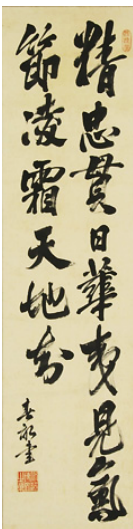 精忠貫日華夷見氣
節凌霜天地知
春畝書